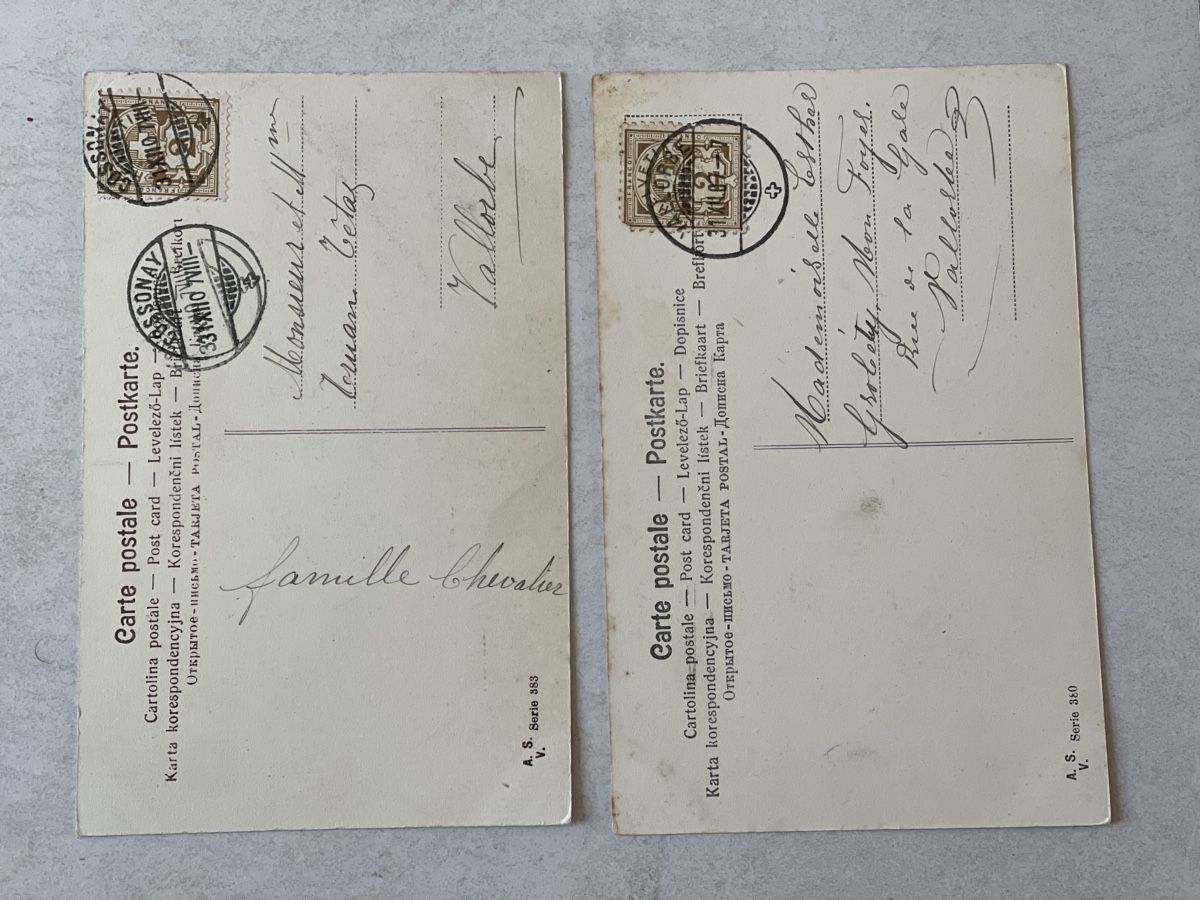 Carte postale — Postkarte.
Cartolina postale — Post card — Levelező-Lap —
Karta korespondencyjna — Korespondenční lístek —
Открытое-письмо - TARJETA POSTAL - Дописна
COSSONAY
31.XII.07.VIII—
COSSONAY
31.XII.07.VIII—
2
Monsieur et Mme
Vallorbe
famille Chevalier
A. S.
V. Serie 383
Carte postale — Postkarte.
Cartolina postale — Post card — Levelező-Lap — Dopisnice
Karta korespondencyjna — Korespondenční lístek — Briefkaart — Brefkort
Открытое-письмо - TARJETA POSTAL - Дописна Карта
2
Mademoiselle Esther
Rue de la Gare
Vallorbe
A. S.
V. Serie 380